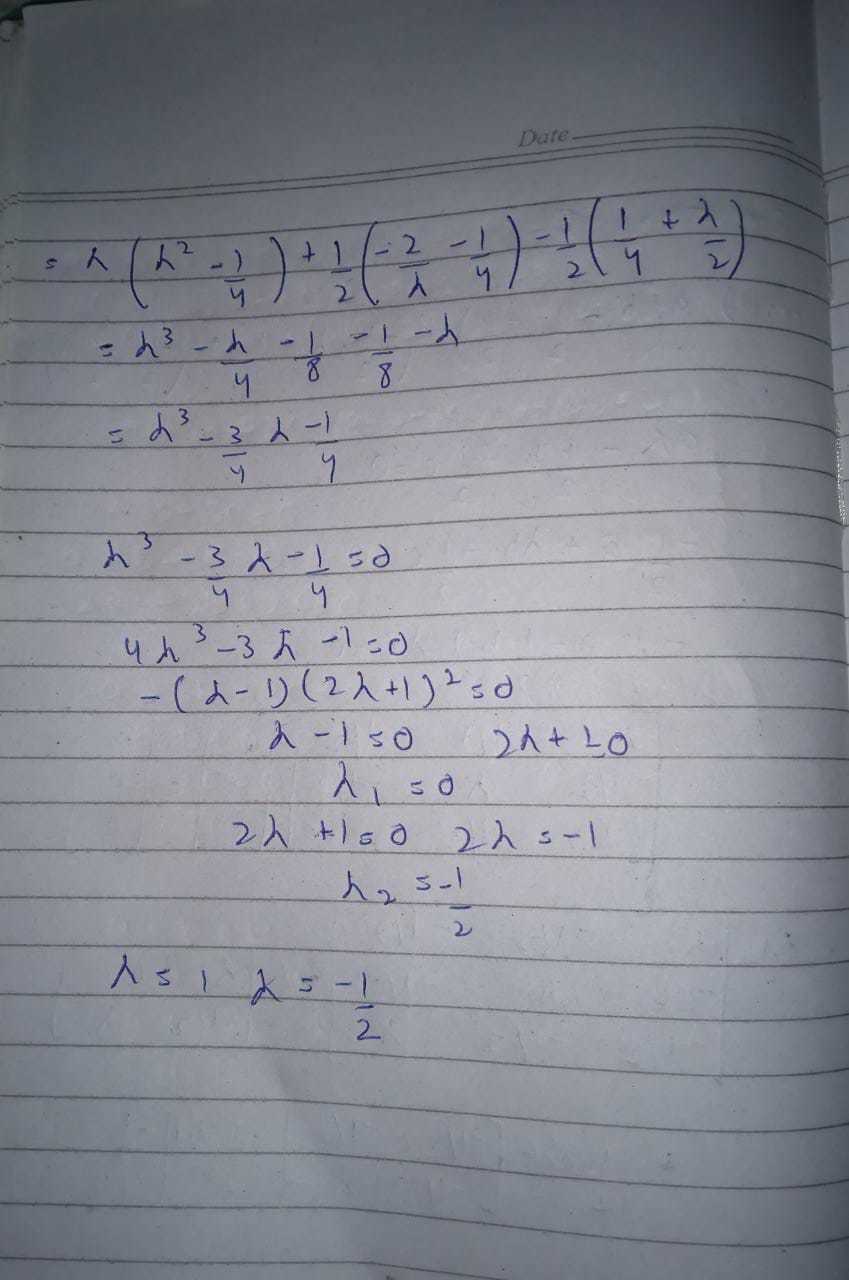 Date
= λ (λ² - 1/4) + 1/2 (-2/λ - 1/4) - 1/2 (1/4 + λ/2)
= λ³ - λ/4 - 1/8 - 1/8 - λ
= λ³ - 3/4 λ - 1/4
λ³ - 3/4 λ - 1/4 = 0
4λ³ - 3λ - 1 = 0
- (λ - 1) (2λ + 1)² = 0
λ - 1 = 0 2λ + 1 0
λ₁ = 0
2λ + 1 = 0 2λ = -1
λ₂ = -1/2
λ = 1 λ = -1/2